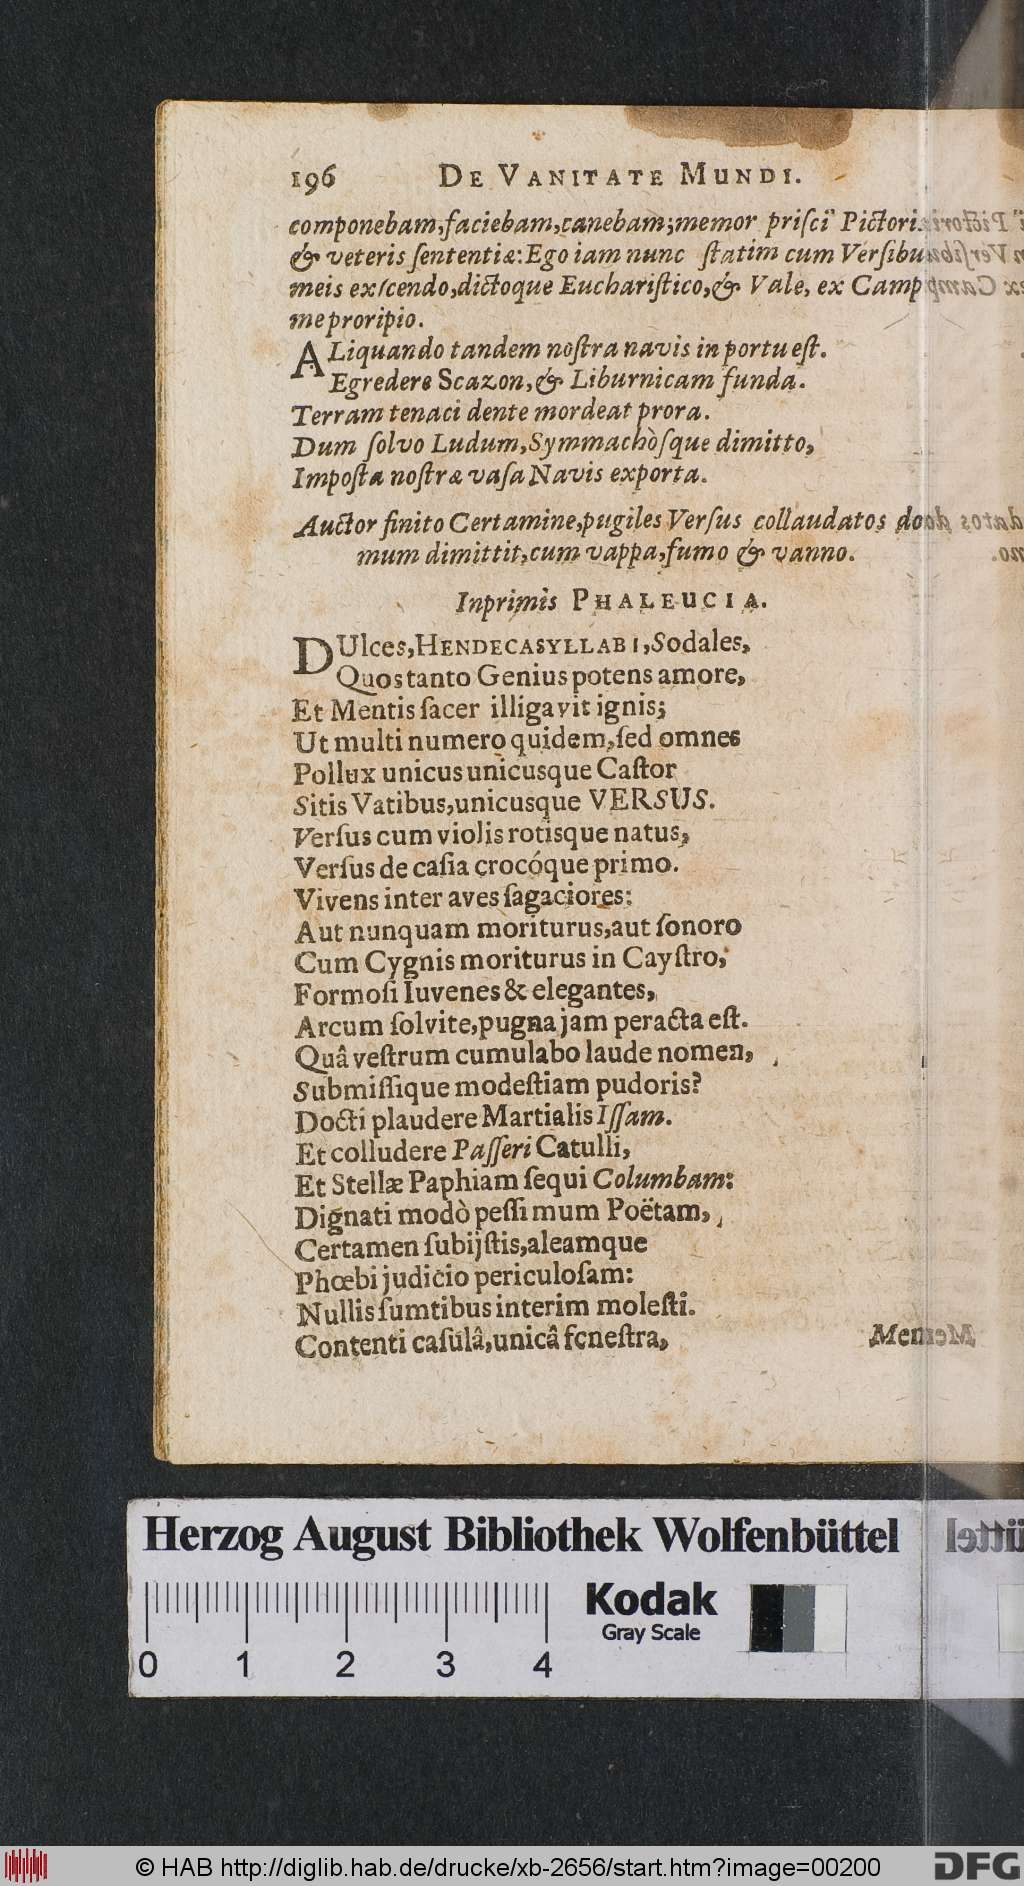 196 DE VANITATE MUNDI.
componebam,faciebam,canebam;memor priſci Pictoris
& veteris ſententiæ:Ego iam nunc ſtatim cum Verſibus
meis exſcendo,dictoque Euchariſtico,& Vale, ex Camp
me proripio.
ALiquando tandem noſtra navis in portu eſt.
Egredere Scazon,& Liburnicam funda.
Terram tenaci dente mordeat prora.
Dum ſolvo Ludum,Symmachòſque dimitto,
Impoſta noſtræ vaſa Navis exporta.
Auctor finito Certamine,pugiles Verſus collaudatos do
mum dimittit,cum vappa,fumo & vanno.
Inprimis PHALEUCIA.
DUlces,HENDECASYLLABI,Sodales,
Quos tanto Genius potens amore,
Et Mentis ſacer illigavit ignis;
Ut multi numero quidem,ſed omnes
Pollux unicus unicusque Caſtor
Sitis Vatibus,unicusque VERSUS.
Verſus cum violis rotisque natus,
Verſus de caſia crocóque primo.
Vivens inter aves ſagaciores:
Aut nunquam moriturus,aut ſonoro
Cum Cygnis moriturus in Cayſtro,
Formoſi Iuvenes & elegantes,
Arcum ſolvite,pugna jam peracta eſt.
Quâ veſtrum cumulabo laude nomen,
Submiſſique modeſtiam pudoris?
Docti plaudere Martialis Iſſam.
Et colludere Paſſeri Catulli,
Et Stellæ Paphiam ſequi Columbam:
Dignati modò peſſimum Poëtam,
Certamen ſubijſtis,aleamque
Phœbi judicio periculoſam:
Nullis ſumtibus interim moleſti.
Contenti caſulâ,unicâ feneſtra,
Mem
Herzog August Bibliothek Wolfenbüttel
Kodak
Gray Scale
0 1 2 3 4
© HAB http://diglib.hab.de/drucke/xb-2656/start.htm?image=00200
DFG